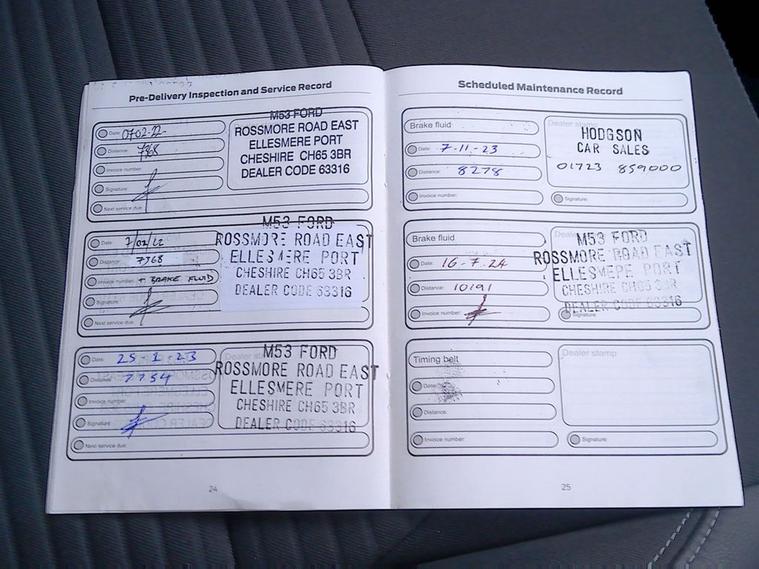 Pre-Delivery Inspection and Service Record
Date: 0702-22-
Distance: 7368
Invoice number:
Signature:
Next service due:
M53 FORD
ROSSMORE ROAD EAST
ELLESMERE PORT
CHESHIRE CH65 3BR
DEALER CODE 63316
Date: 7/02/22
Distance: 7368
Invoice number: + BRAKE FLUID
Signature:
Next service due:
M53 FORD
ROSSMORE ROAD EAST
ELLESMERE PORT
CHESHIRE CH65 3BR
DEALER CODE 63316
Date: 25-1-23
Distance: 7754
Invoice number:
Signature:
Next service due:
Dealer
M53 FORD
ROSSMORE ROAD EAST
ELLESMERE PORT
CHESHIRE CH65 3BR
DEALER CODE 63316
24
Scheduled Maintenance Record
Brake fluid
Date: 7-11-23
Distance: 8278
Invoice number:
Dealer stamp
HODGSON
CAR SALES
01723 859000
Signature:
Brake fluid
Date: 16-7-24
Distance: 10191
Invoice number:
Dealer
M53 FORD
ROSSMORE ROAD EAST
ELLESMERE PORT
CHESHIRE CH65 3BR
DEALER CODE 63316
Signature:
Timing belt
Date:
Distance:
Invoice number:
Dealer stamp
Signature:
25